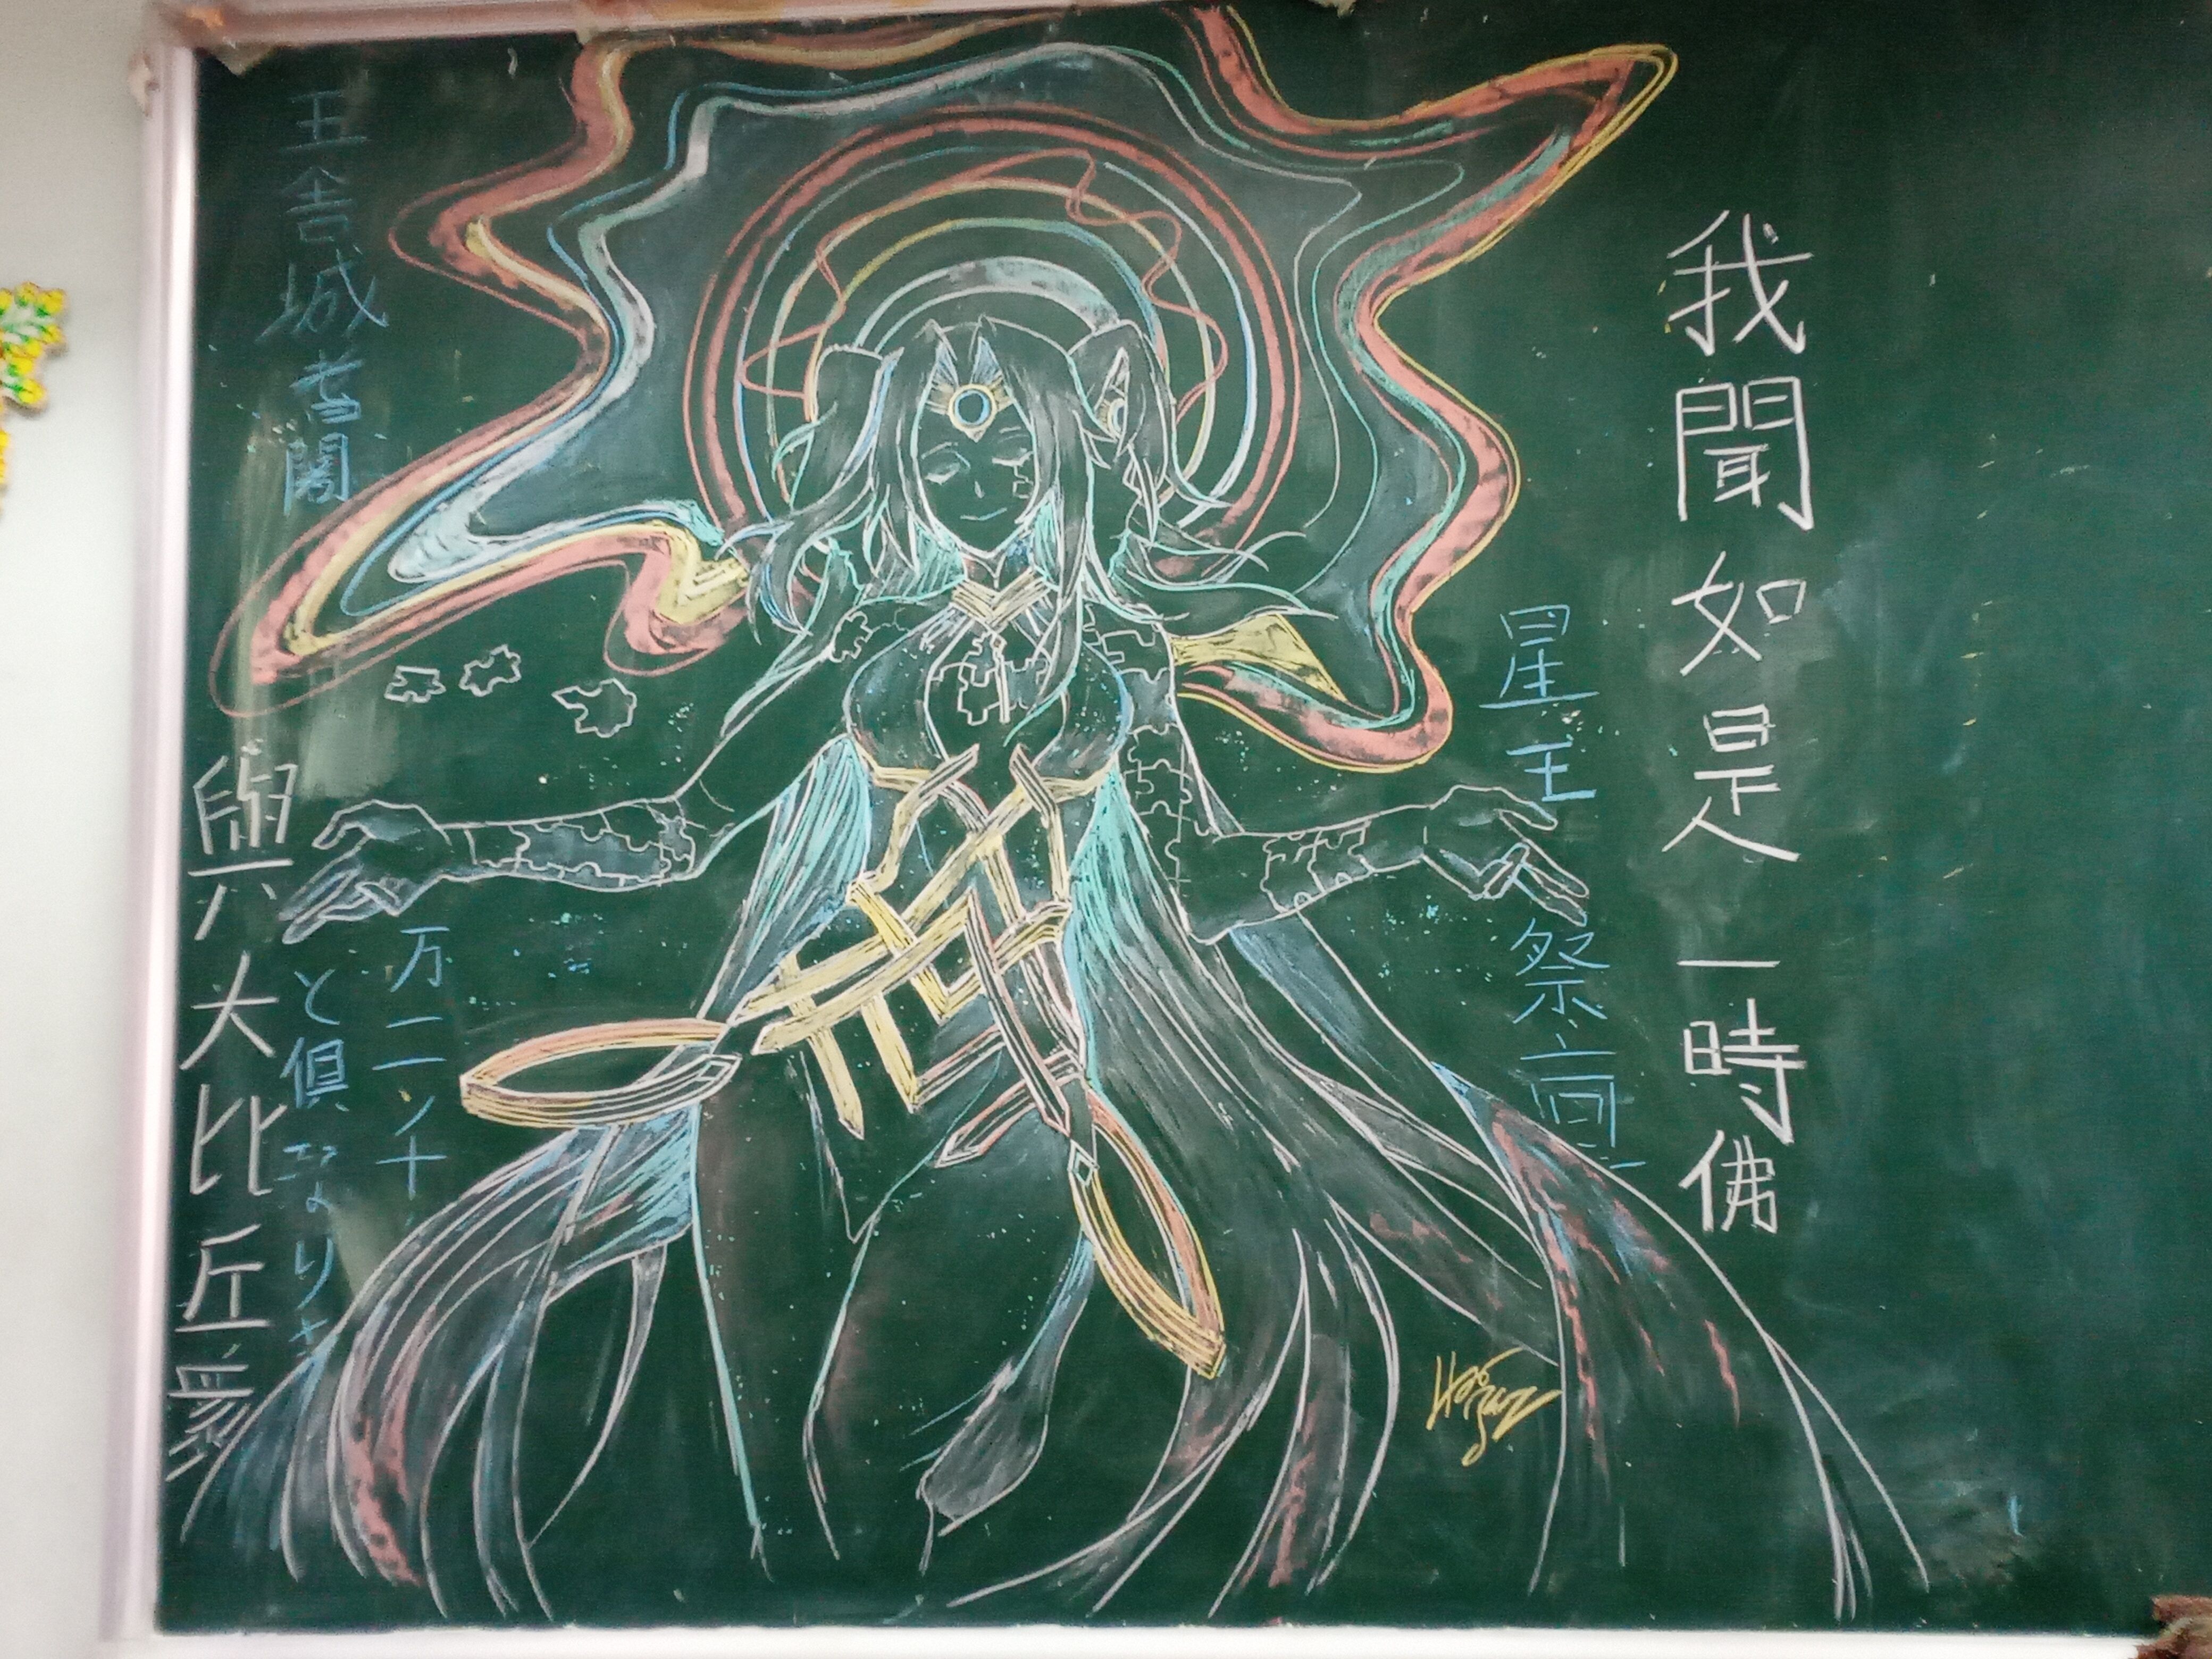 我聞如是一時佛
星王祭
王舎城耆闍
万二千
と倶なりき
與大比丘衆
Haijun